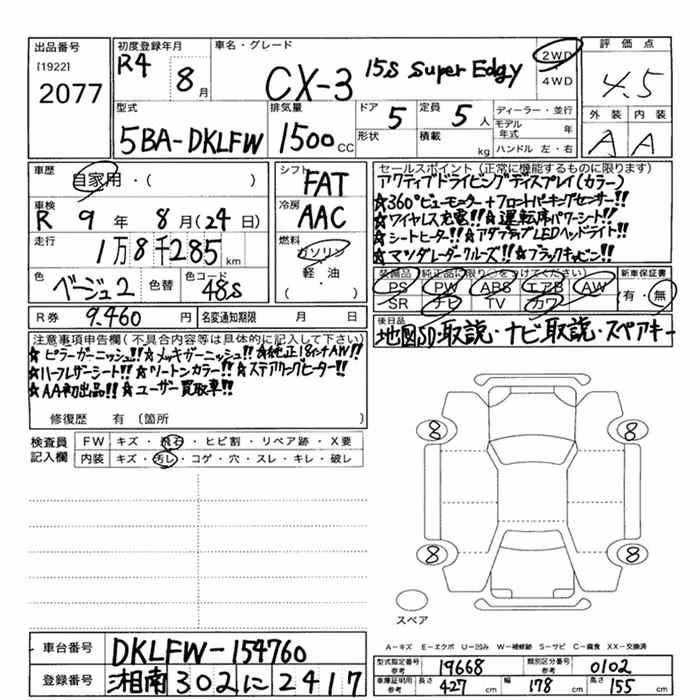 出品番号
[1922]
2077
初度登録年月
R4 8月
車名・グレード
CX-3 15S Super Edgy
2WD
4WD
評価点
4.5
外装 内装
A A
型式
5BA-DKLFW
排気量
1500CC
ドア 5
形状
定員 5人
積載 kg
ディーラー・並行
モデル年式 年
ハンドル 左・右
車歴
自家用・( )
車検
R 9年 8月(24日)
走行
1万8千285km
色
ベージュ2
色替
色コード
48S
シフト
FAT
冷房
AAC
燃料
ガソリン
軽・油
( )
セールスポイント(正常に機能するものに限ります)
アクティブドライビングディスプレイ(カラー)
☆360°ビューモニター+フロントパーキングセンサー!!
☆ワイヤレス充電!!☆運転席パワーシート!!
☆シートヒーター!!☆アダプティブLEDヘッドライト!!
☆マツダレーダークルーズ!!☆ブラックキャビン!!
装備品(純正品に限り○をつけてください)
PS PW ABS エアB AW
SR ナビ TV カワ
新車保証書
有・無
R券 9.460円
名変通知期限 月 日
後日品
地図SD・取説・ナビ取説・スペアキー
注意事項申告欄(不具合内容等は具体的に記入して下さい)
☆ピラーガーニッシュ!!☆メッキガーニッシュ!!☆純正18インチAW!!
☆ハーフレザーシート!!☆ツートンカラー!!☆ステアリングヒーター!!
☆AA初出品!!☆ユーザー買取車!!
修復歴 有(箇所
検査員記入欄
FW キズ・飛石・ヒビ割・リペア跡・X要
内装 キズ・汚レ・コゲ・穴・スレ・キレ・破レ
8 8
8 8
スペア
A-キズ E-エクボ U-凹み W-補修跡 S-サビ C-腐食 XX-交換済
車台番号 DKLFW-154760
登録番号 湘南302に2417
型式指定番号参考 19668
類別区分番号参考 0102
車庫証明用参考 長さ 427cm 幅 178cm 高さ 155cm